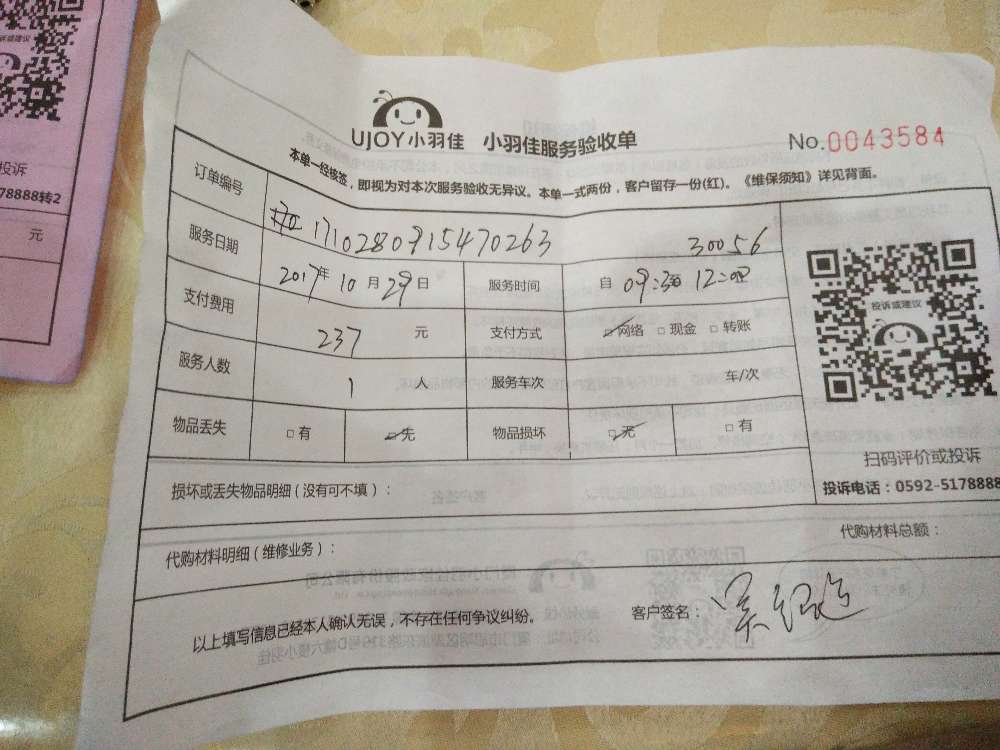 投诉
78888转2
元
UJOY小羽佳 小羽佳服务验收单
No.0043584
本单一经核签,即视为对本次服务验收无异议。本单一式两份,客户留存一份(红)。《维保须知》详见背面。
订单编号 1710280915470263 30056
服务日期 2017年10月29日 服务时间 自 09:30至 12:00
支付费用 237 元 支付方式 □网络 □现金 □转账
服务人数 1 人 服务车次 车/次
物品丢失 □有 □无 物品损坏 □无 □有
投诉或建议
扫码评价或投诉
投诉电话:0592-5178888
损坏或丢失物品明细(没有可不填):
代购材料明细(维修业务): 代购材料总额:
以上填写信息已经本人确认无误,不存在任何争议纠纷。 客户签名: